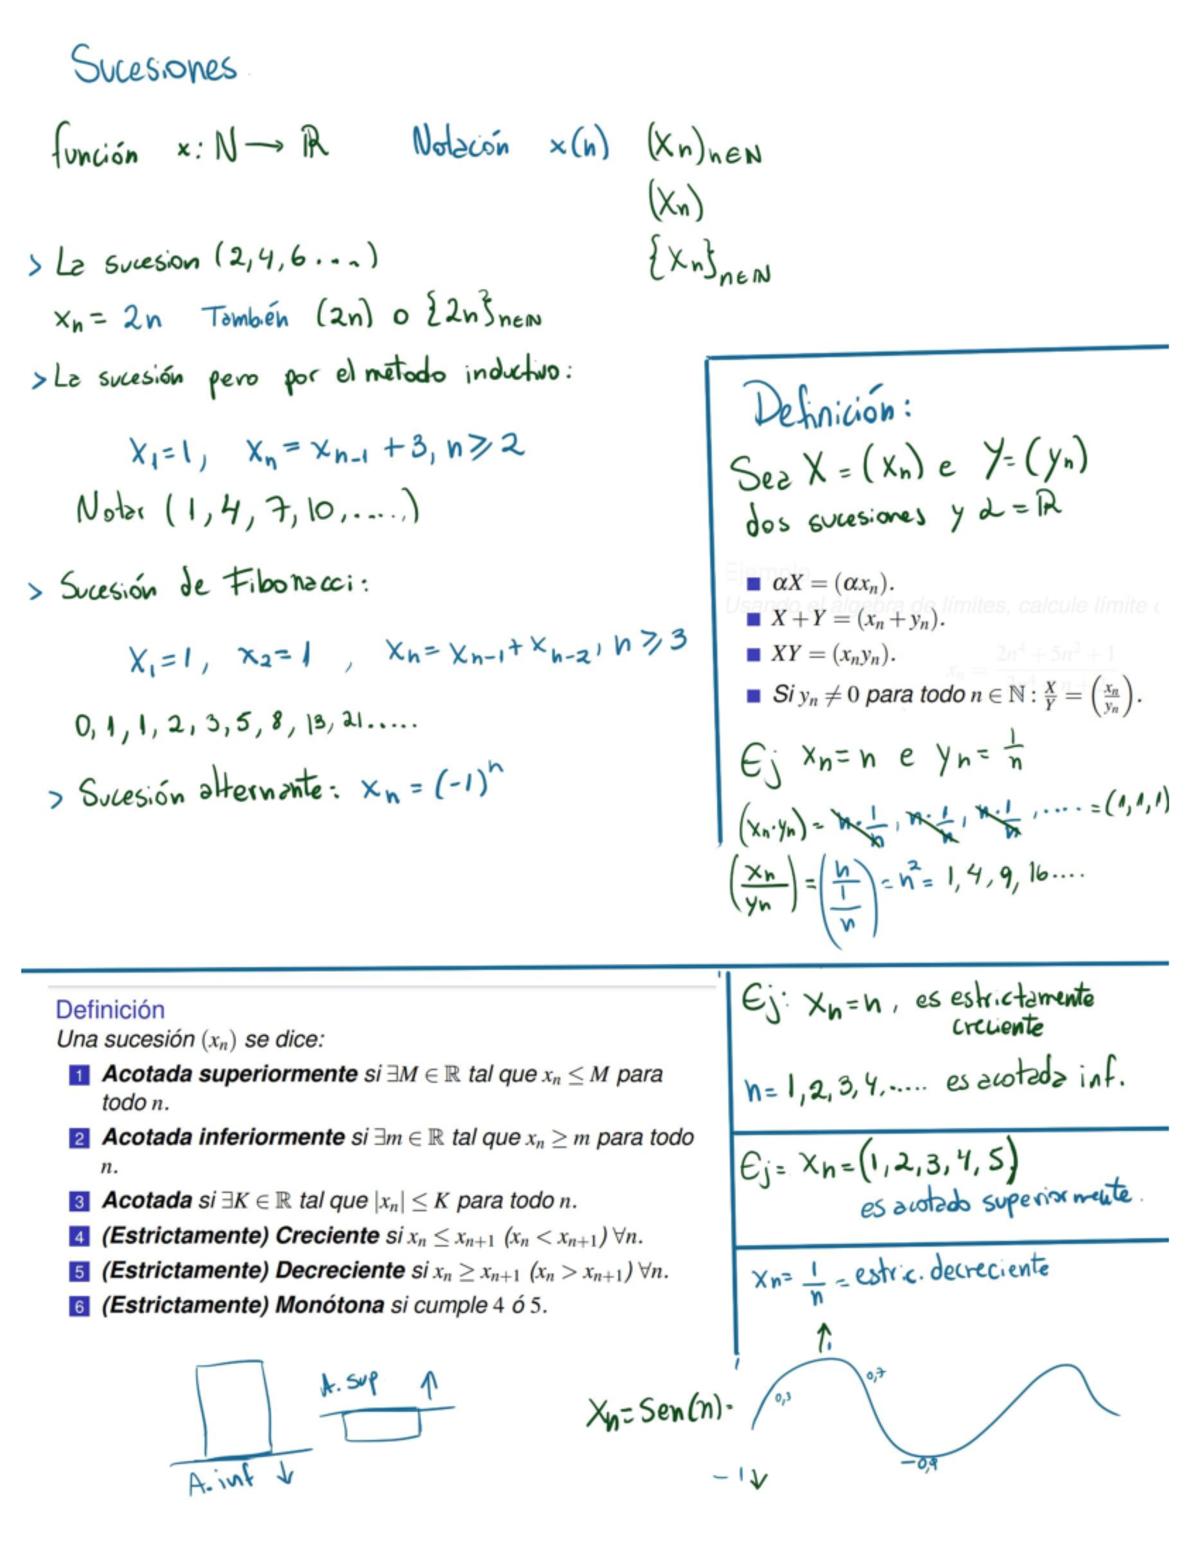 Sucesiones
función x: N → ℝ   Notación x(n)   (xₙ)n∈N
(xₙ)
{xₙ}n∈N
> La sucesion (2,4,6....)
xₙ = 2n   También (2n) o {2n}n∈N
> La sucesión pero por el método inductivo:
x₁=1,   xₙ = xₙ₋₁ + 3, n ⩾ 2
Notar (1,4,7,10,.....)
> Sucesión de Fibonacci:
x₁=1,   x₂=1   ,   xₙ = xₙ₋₁ + xₙ₋₂, n ⩾ 3
0, 1, 1, 2, 3, 5, 8, 13, 21.....
> Sucesión alternante: xₙ = (-1)ⁿ
Definición:
Sea X = (xₙ) e Y = (yₙ)
dos sucesiones y α = ℝ
Ejemplo
■ αX = (αxₙ).
Usando el álgebra de límites, calcule límite
■ X + Y = (xₙ + yₙ).
■ XY = (xₙyₙ).
■ Si yₙ ≠ 0 para todo n ∈ ℕ : X/Y = (xₙ/yₙ).
Ej   xₙ = n   e   yₙ = 1/n
(xₙ·yₙ) = n·1/n, n·1/n, n·1/n, .... = (1,1,1)
(xₙ/yₙ) = (n/(1/n)) = n² = 1, 4, 9, 16....
Definición
Una sucesión (xₙ) se dice:
1 Acotada superiormente si ∃M ∈ ℝ tal que xₙ ≤ M para
todo n.
2 Acotada inferiormente si ∃m ∈ ℝ tal que xₙ ≥ m para todo
n.
3 Acotada si ∃K ∈ ℝ tal que |xₙ| ≤ K para todo n.
4 (Estrictamente) Creciente si xₙ ≤ xₙ₊₁ (xₙ < xₙ₊₁) ∀n.
5 (Estrictamente) Decreciente si xₙ ≥ xₙ₊₁ (xₙ > xₙ₊₁) ∀n.
6 (Estrictamente) Monótona si cumple 4 ó 5.
Ej: xₙ = n, es estrictamente
creciente
n = 1,2,3,4,..... es acotada inf.
Ej = xₙ = (1,2,3,4,5)
es acotado superiormente.
xₙ = 1/n = estric. decreciente
A. sup ↑
A. inf ↓
xₙ = Sen(n).
0,3
0,7
-0,9
-1↓